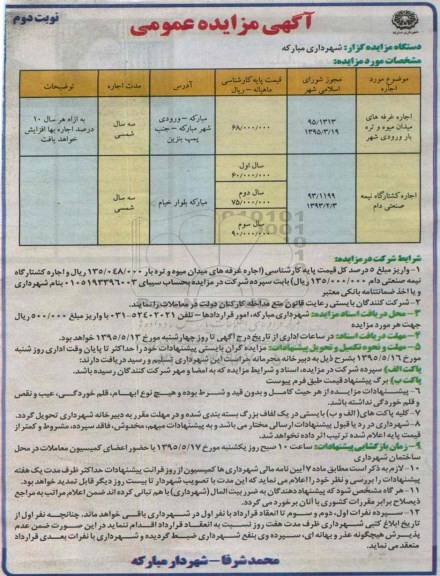 نوبت دوم
آگهی مزایده عمومی
دستگاه مزایده گزار: شهرداری مبارکه
مشخصات مورد مزایده:
موضوع مورد اجاره | مجوز شورای اسلامی شهر | قیمت پایه کارشناسی ماهیانه – ریال | آدرس | مدت اجاره | توضیحات
اجاره غرفه های میدان میوه و تره بار ورودی شهر | ۹۵/۱۳۱۳ ۱۳۹۵/۳/۱۹ | ۶۸/۰۰۰/۰۰۰ | مبارکه – ورودی شهر مبارکه – جنب پمپ بنزین | سه سال شمسی | به ازاء هر سال ۱۰ درصد اجاره بها افزایش خواهد یافت
اجاره کشتارگاه نیمه صنعتی دام | ۹۳/۱۱۹۹ ۱۳۹۳/۲/۳ | سال اول ۶۰/۰۰۰/۰۰۰ سال دوم ۷۵/۰۰۰/۰۰۰ سال سوم ۹۰/۰۰۰/۰۰۰ | مبارکه بلوار خیام | سه سال شمسی
شرایط شرکت در مزایده:
۱- واریز مبلغ ۵ درصد کل قیمت پایه کارشناسی (اجاره غرفه های میدان میوه و تره بار ۱۳۵/۰۴۸/۰۰۰ ریال و اجاره کشتارگاه
نیمه صنعتی دام ۱۳۵/۰۰۰/۰۰۰ ریال) بابت سپرده شرکت در مزایده بحساب سیبای ۰۱۰۵۱۹۳۳۹۶۰۰۳ بنام شهرداری
و یا اخذ ضمانتنامه بانکی معتبر
۲- شرکت کنندگان بایستی رعایت قانون منع مداخله کارکنان دولت در معاملات را نمایند.
۳- محل دریافت اسناد مزایده: شهرداری مبارکه، امور قراردادها – تلفن ۵۲۴۰۲۰۲۱-۰۳۱ با واریز مبلغ ۵۰۰/۰۰۰ ریال
جهت هر مورد مزایده
۴- مهلت دریافت اسناد: در ساعات اداری از تاریخ درج آگهی تا روز چهارشنبه مورخ ۱۳۹۵/۵/۱۳ خواهد بود.
۵- مهلت و نحوه تکمیل و تحویل پیشنهادات: مزایده گران بایستی پیشنهادات خود را حداکثر تا پایان وقت اداری روز شنبه
مورخ ۱۳۹۵/۵/۱۶ بشرح ذیل به دبیرخانه محرمانه حراست این شهرداری تسلیم و رسید دریافت دارند:
پاکت الف) سپرده شرکت در مزایده، اسناد و شرایط مزایده که به امضا و مهر شرکت کنندگان رسیده باشد.
پاکت ب) برگ پیشنهاد قیمت طبق فرم پیوست
۶- پیشنهادات مزایده از هر حیث کامل و بدون قید و شرط بوده و هیچ نوع ابهام، قلم خوردگی، عیب و نقص
و قلم خوردگی نداشته باشد.
۷- کلیه پاکت های (الف و ب) بایستی در یک لفاف بزرگ بسته بندی شده و در مهلت مقرر به دبیرخانه شهرداری تحویل گردد.
۸- شهرداری در رد یا قبول پیشنهادات ارسالی مختار می باشد و به پیشنهادات مبهم، مخدوش، فاقد سپرده، مشروط و کمتر از
قیمت پایه اعلام شده ترتیب اثر داده نخواهد شد.
۹- زمان بازگشایی پیشنهادات: ساعت ۱۰ صبح روز یکشنبه مورخ ۱۳۹۵/۵/۱۷ با حضور اعضای کمیسیون معاملات در محل
ساختمان شهرداری
۱۰- لازم به ذکر است مطابق ماده ۷ آیین نامه مالی شهرداری ها کمیسیون از روز قرائت پیشنهادات حداکثر ظرف مدت یک هفته
پیشنهادات را بررسی و نظر خود را اعلام می نماید که این مدت با تصویب شهردار تا بیست روز دیگر قابل تمدید خواهد بود.
۱۱- هر گاه مشخص شود که پیشنهاد دهندگان به ضرر بیت المال (شهرداری) با هم تبانی کرده اند ضمن اعلام مراتب به مراجع
ذیصلاح برابر مقررات کشوری با آنان برخورد می گردد.
۱۲- سپرده نفرات اول، دوم و سوم تا انعقاد قرارداد با نفر اول در شهرداری باقی خواهد ماند، چنانچه نفر اول از
تاریخ ابلاغ کتبی شهرداری ظرف مدت هفت روز نسبت به انعقاد قرارداد اقدام ننماید در این صورت ضمن عدم
پذیرش هیچگونه عذر و بهانه ای، سپرده وی بنفع شهرداری ضبط گردیده و شهرداری با نفرات بعدی قرارداد
منعقد می نماید.
محمد شرفا – شهردار مبارکه